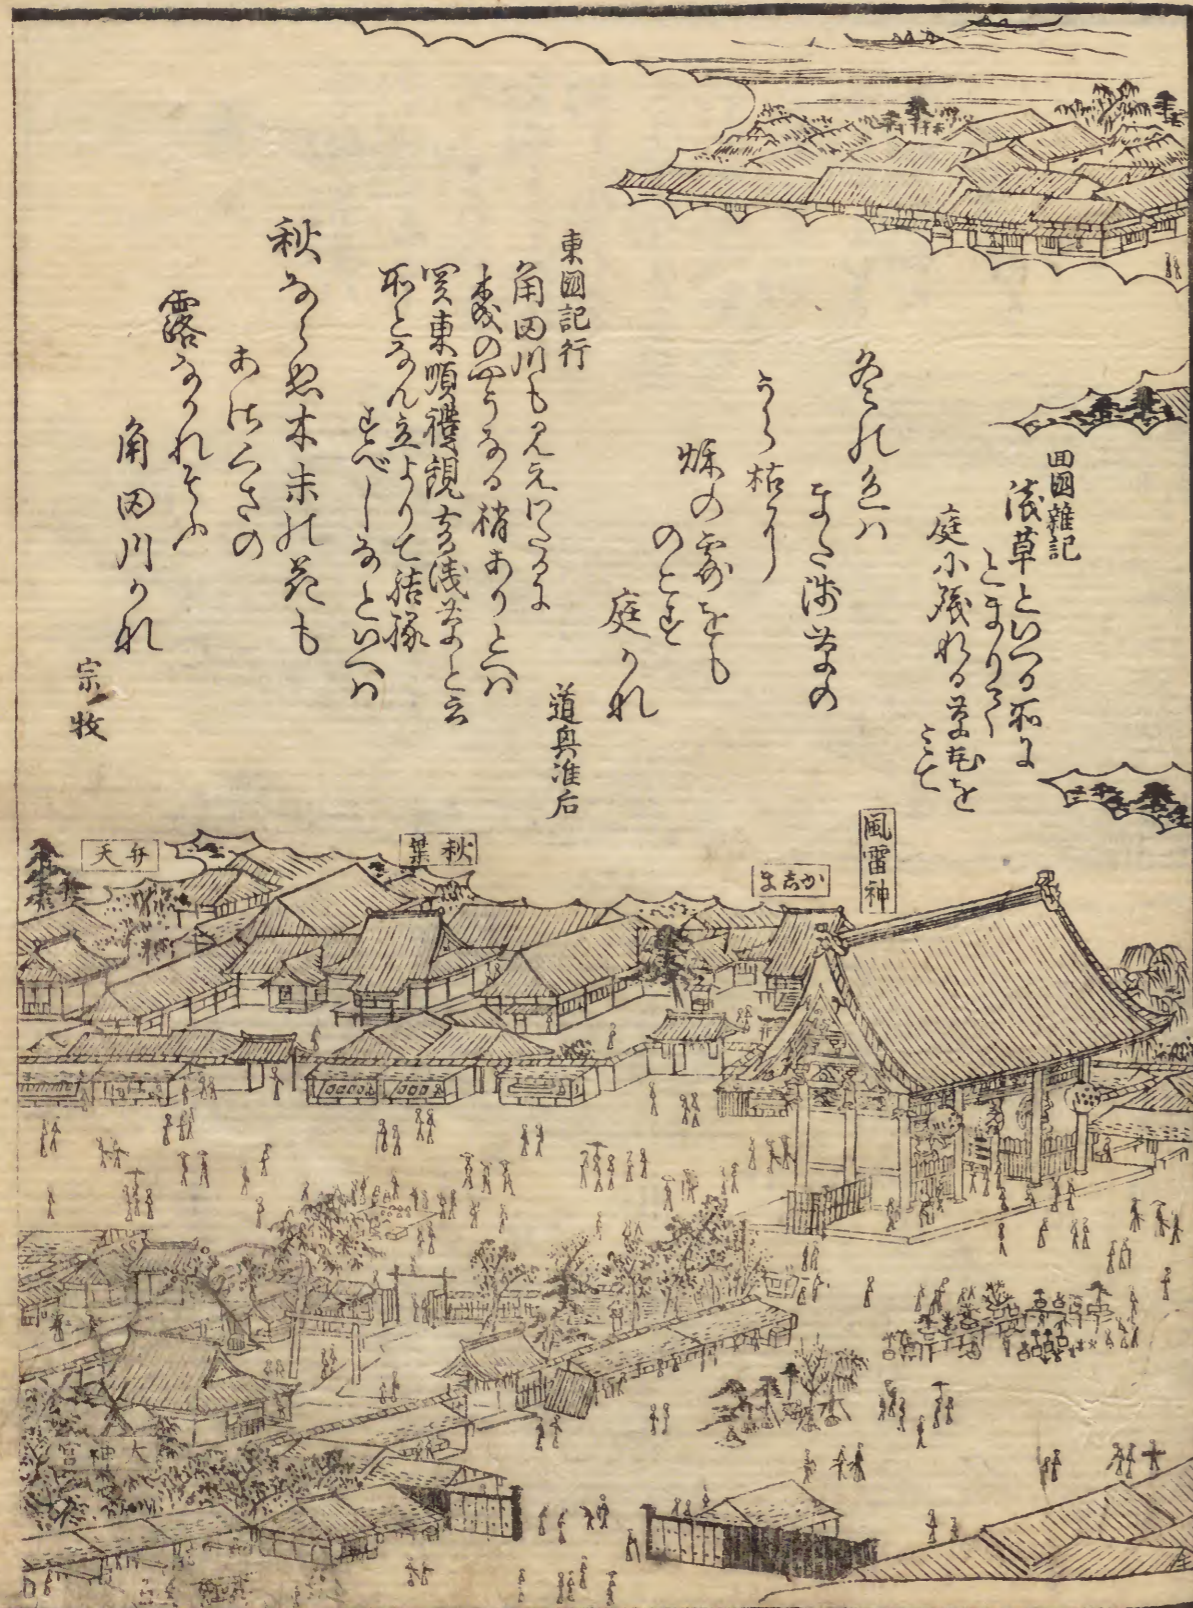 囬國雜記
浅草といへる所に
とまりて
庭に残れる草花を
みて
冬の色ハ
また浅草の
うら枯に
烁の露をも
のこす
庭かな
道興准后
東國記行
角田川も見えわたるに
森のやうなる梢ありとへハ
関東順禮観音浅草と云
所となん立よりて結縁
すべしなといへハ
秋ならぬ木末の花も
あさくさの
露なかれそふ
角田川かな
宗牧
風雷神
かしま
秋葉
弁天
大神宮